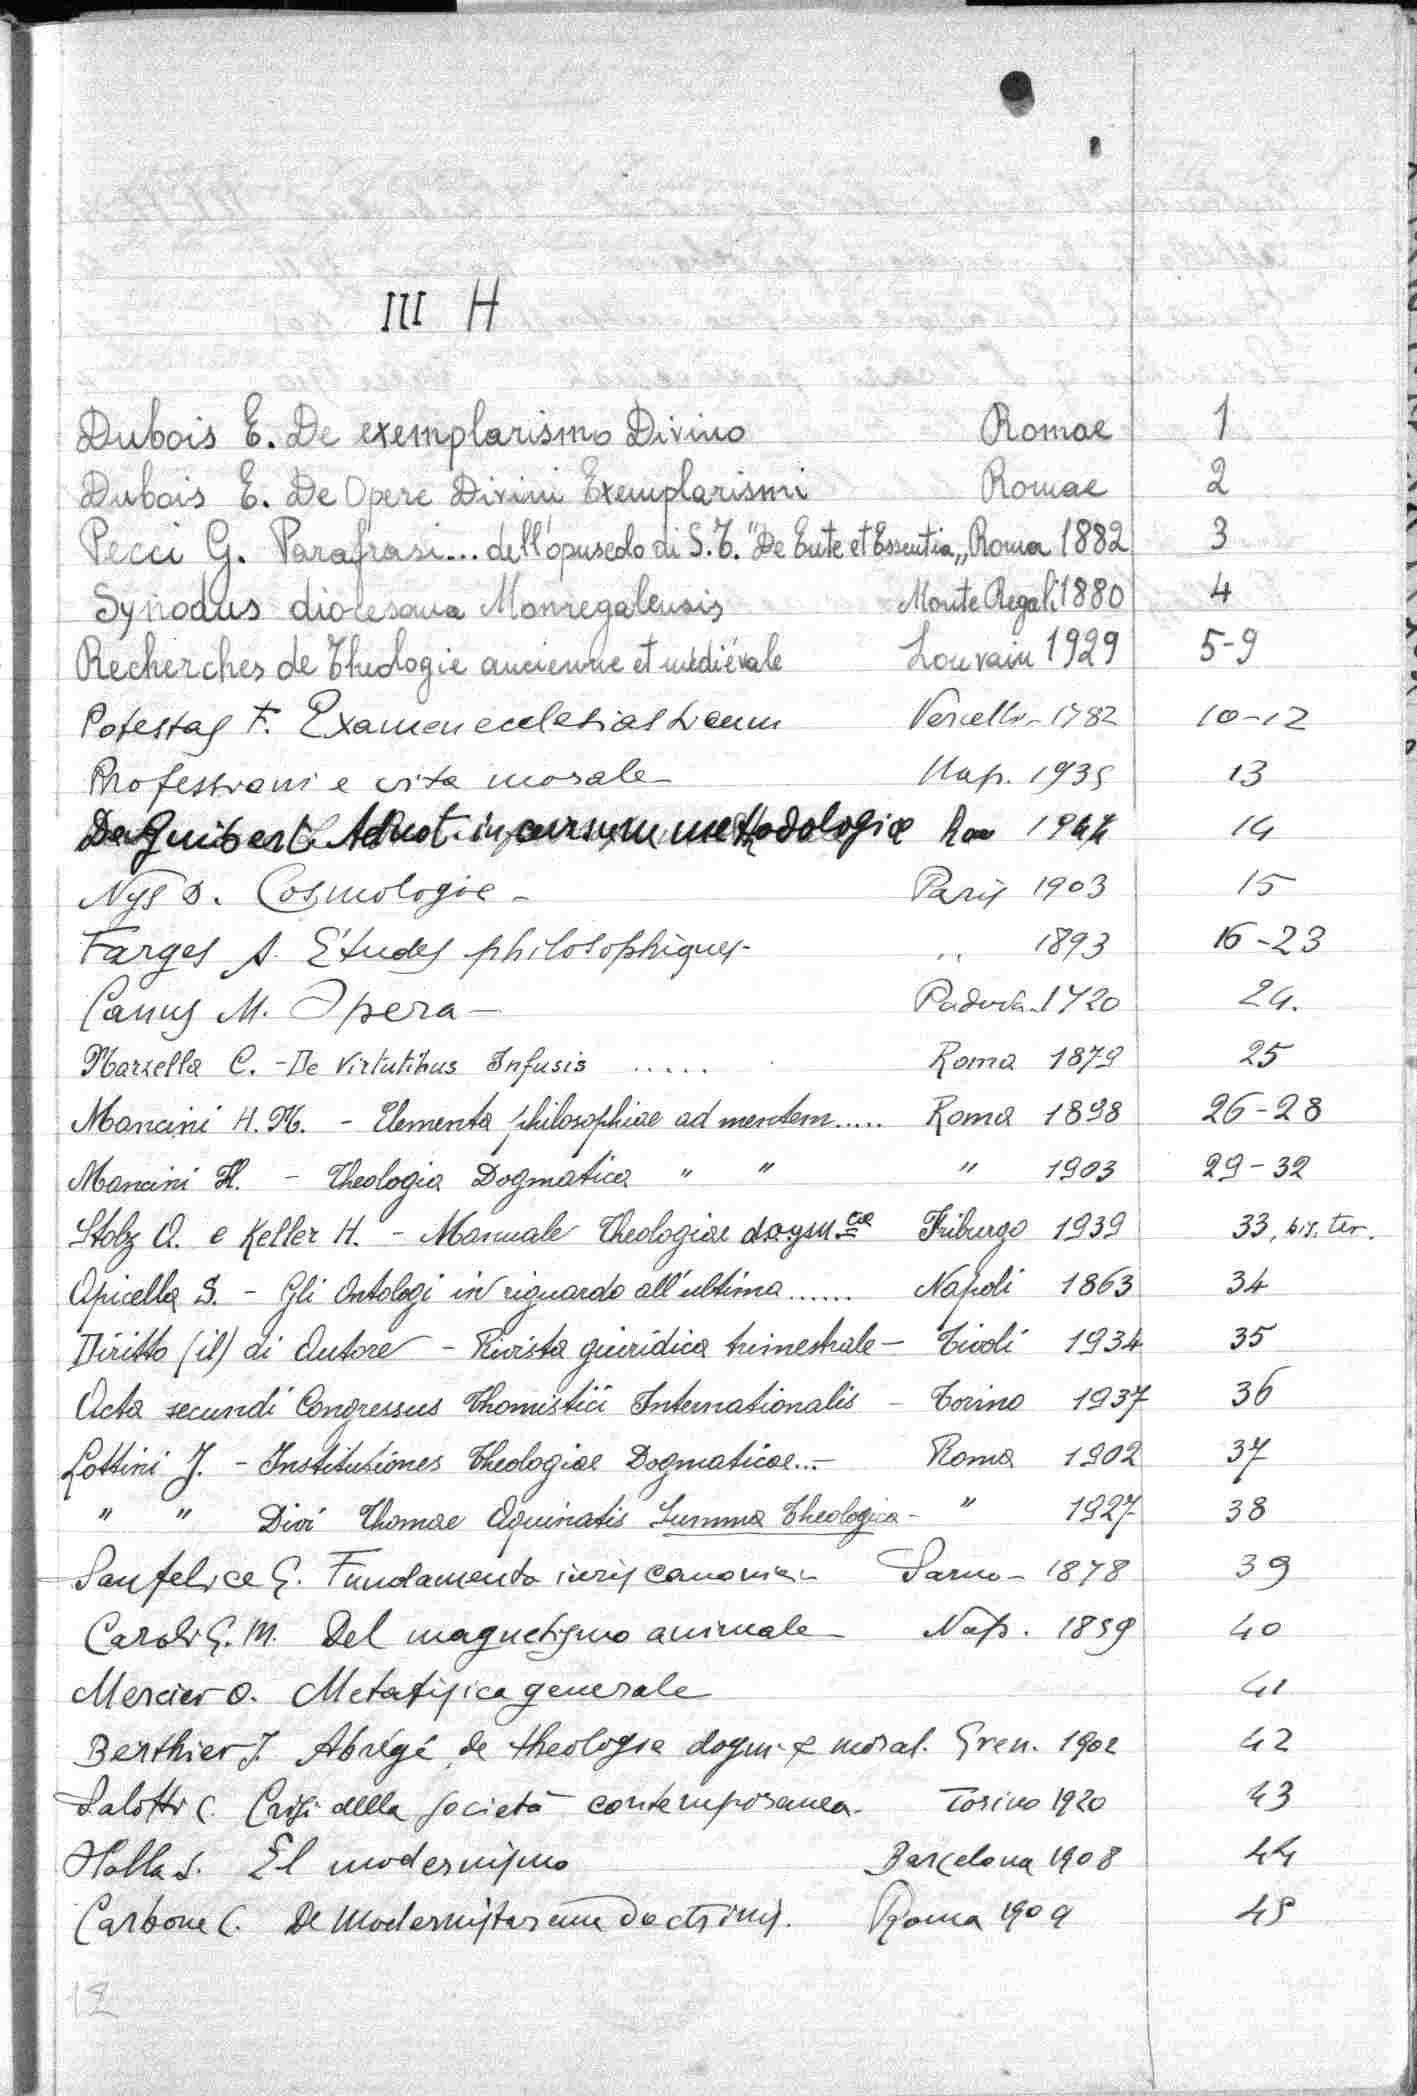 III H
Dubois E. De exemplarismo Divino Romae 1
Dubois E. De Opere Divini Exemplarismi Romae 2
Pecci G. Parafrasi... dell'opuscolo di S.T. "De Ente et Essentia„ Roma 1882 3
Synodus diocesana Monregalensis Monte Regali 1880 4
Recherches de Théologie ancienne et médiévale Louvain 1929 5-9
Potestas F. Examen ecclesiasticum Vercelli - 1782 10-12
Professioni e vita morale - Nap. 1935 13
De Guibert Adnot. in cursum methodologiae 14
Nys D. Cosmologie - Paris 1903 15
Farges A. Études philosophiques - ,, 1893 16-23
Canus M. Opera - Padova. 1720 24.
Marzella C. - De Virtutibus Infusis ..... Roma 1879 25
Mancini H.M. - Elementa philosophiae ad mentem..... Roma 1898 26-28
Mancini H. - Theologia Dogmatica " " " 1903 29-32
Stolz A. e Keller H. - Manuale Theologiae dogm.cae Friburgo 1939 33, bis. ter.
Apicella S. - Gli Ontologi in riguardo all'ultima ...... Napoli 1863 34
Diritto (il) di Autore - Rivista giuridica trimestrale - Tivoli 1934 35
Acta secundi Congressus Thomistici Internationalis - Torino 1937 36
Lottini J. - Institutiones Theologiae Dogmaticae... - Roma 1902 37
" " Divi Thomae Aquinatis Summa Theologica - " 1927 38
Sanfelice G. Fundamenta iuris canonici - Sarno - 1878 39
Caroli G.M. Del magnetismo animale - Nap. 1859 40
Mercier D. Metafisica generale 41
Berthier J. Abrégé de theologie dogm. e moral. Gren. 1902 42
Salotti C. Crisi della società contemporanea. Torino 1920 43
S. El modernismo Barcelona 1908 44
Carbone C. De Modernistarum doctrinis. Roma 1909 45
12